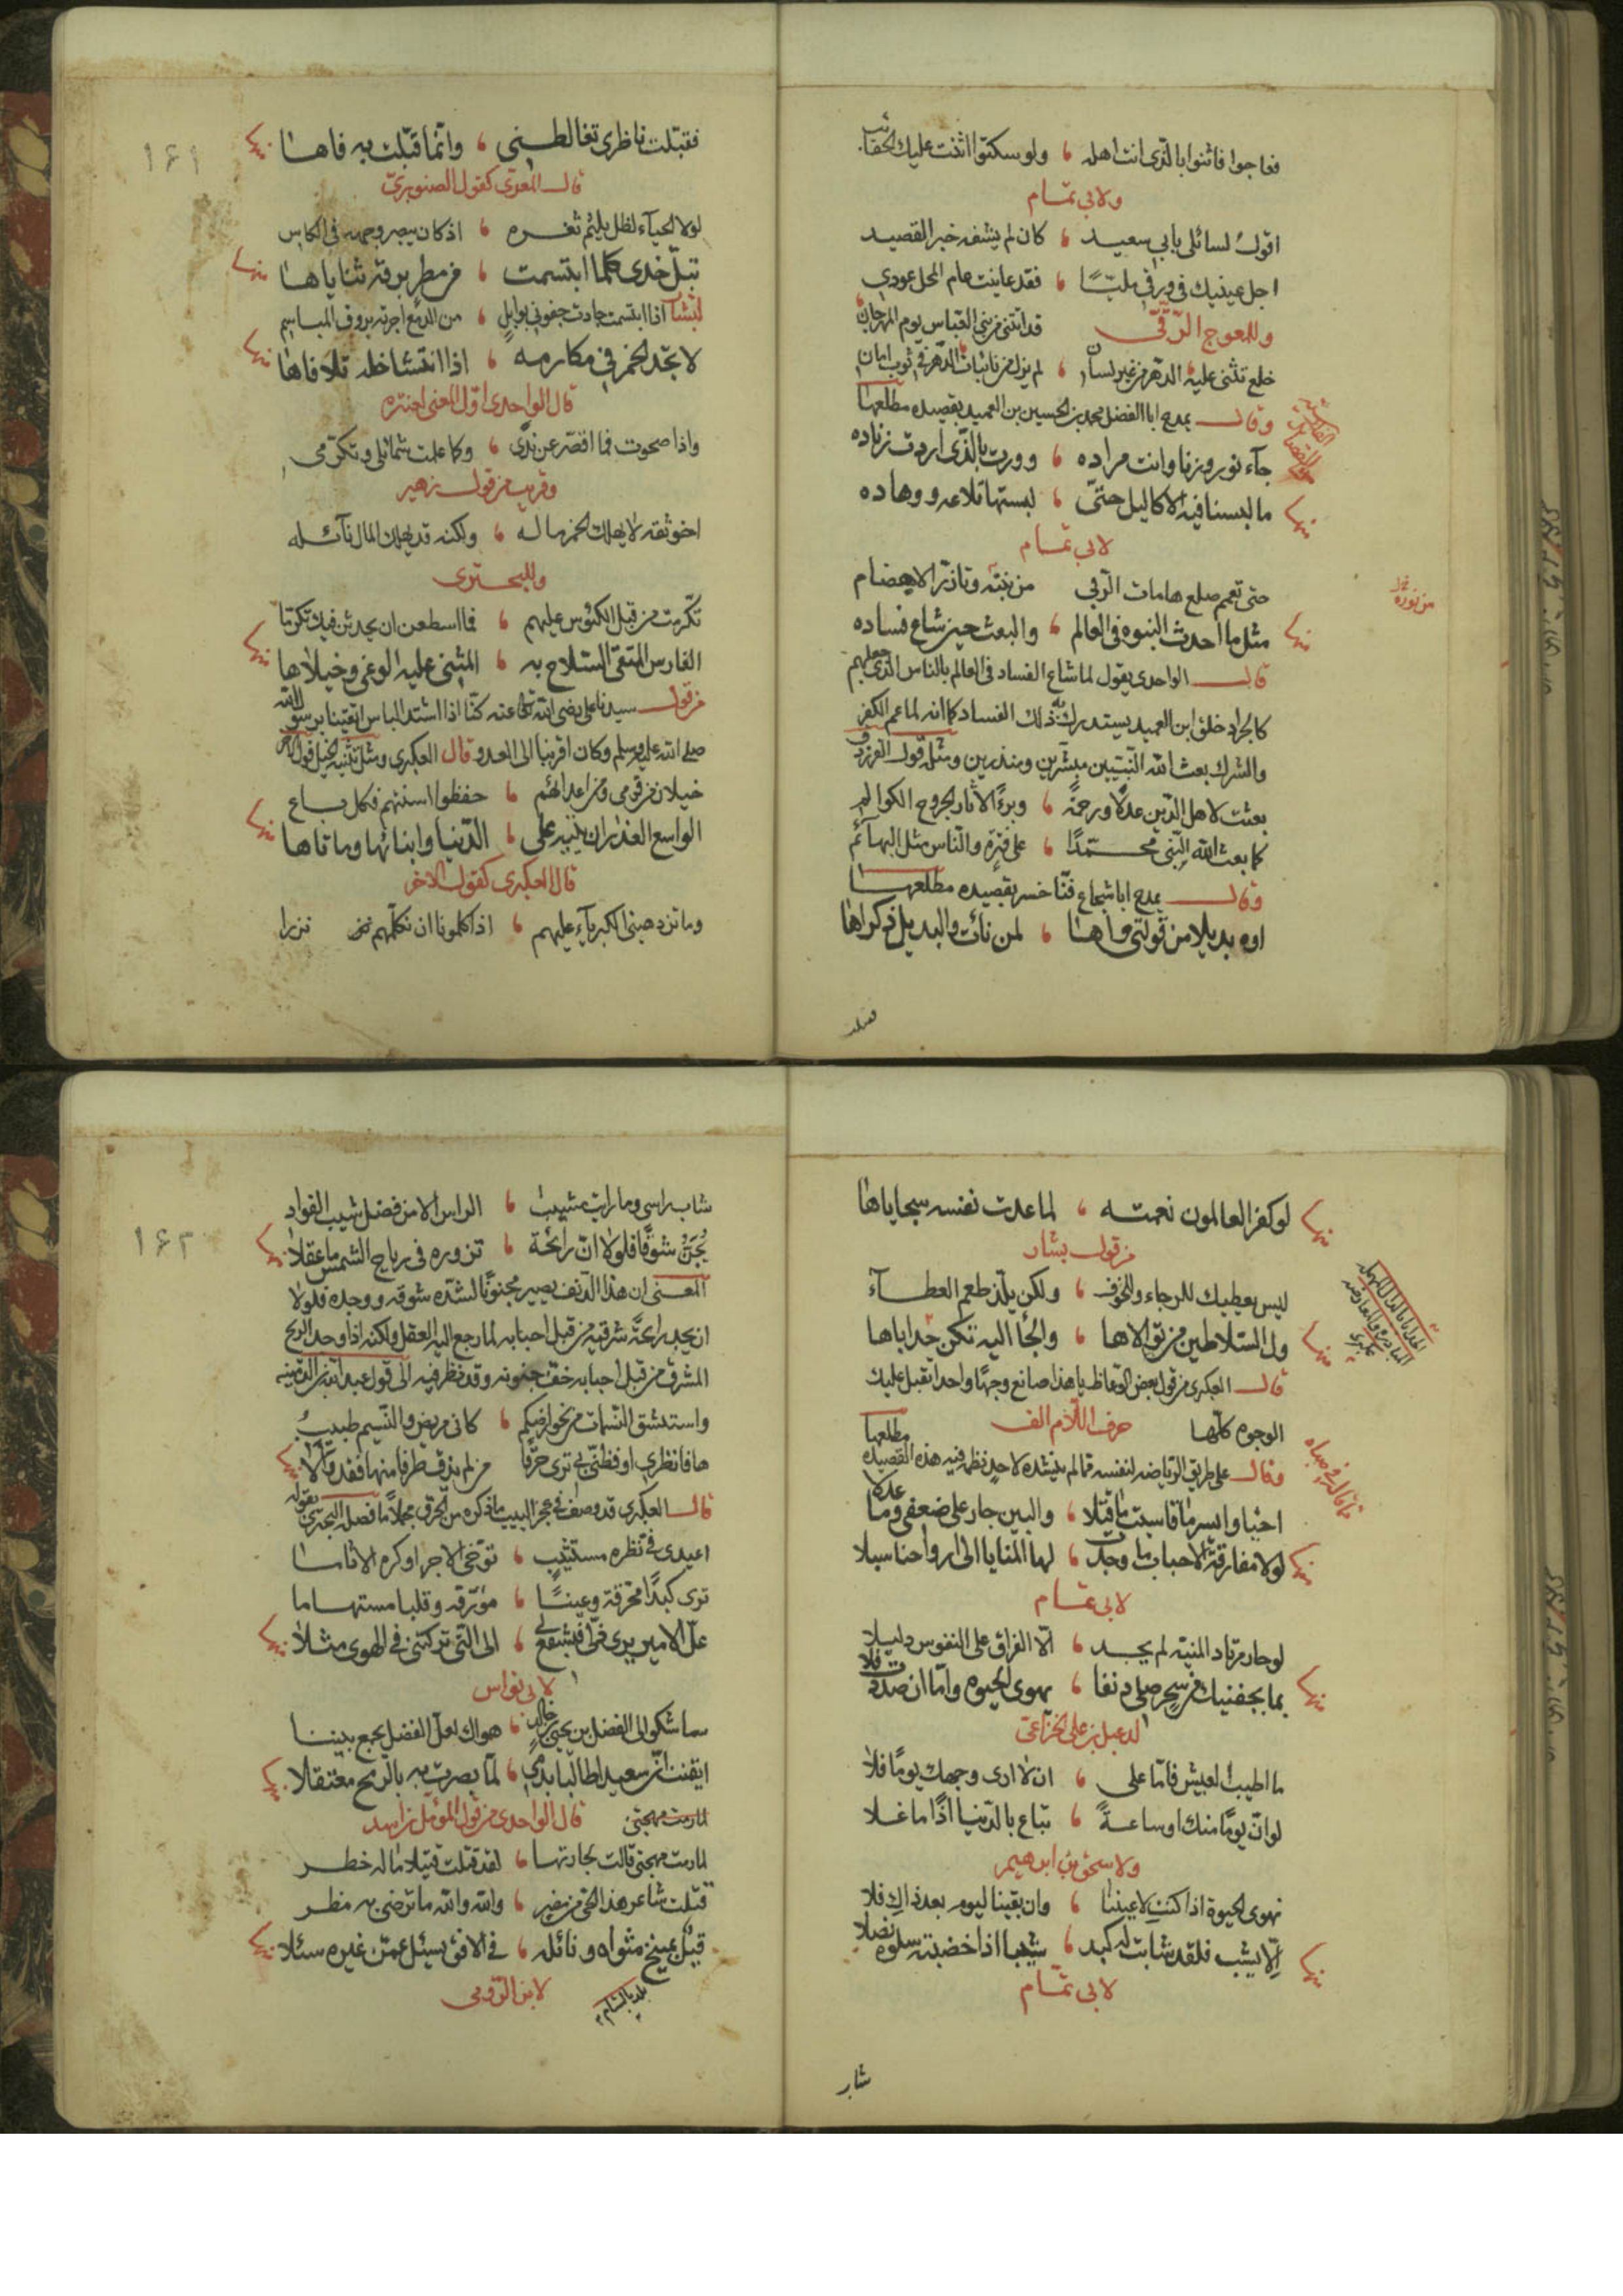 فعاجوا فاثنوا بالذي انت اهله ، ولو سكتوا اثنت عليك الحقائب
ولابي تمام
اقول لسائلي بابي سعيد ، كان لم يشفه خبر القصيد
اجل عينيك في ورقي مليّا ، فقد عاينت عام المحل عودي
وللعوج الرقّي قد اتتني من بني العباس يوم المهرجان
خلع تثني عليه الدهر من غير لسان ، لم يزل من نائبات الدهر في ثوب امان
وقال يمدح ابا الفضل محمد بن الحسين بن العميد بقصيده مطلعها
جآء نوروزنا وانت مراده ، وورت بالذي اردت زناده
ما لبسنا فيه الاكاليل حتى ، لبستها تلاعه ووهاده
منها
لابي تمام
حتى تعمم صلع هامات الربى من نبته وتازر الاهضام
من نوره
مثل ما احدث النبوه في العالم ، والبعث حين شاع فساده
منها
قال الواحدي يقول لما شاع الفساد في العالم بالناس الذي جعلهم
كالجراد خلق ابن العميد يستدرك به ذلك الفساد كما انه لما عم الكفر
والشرك بعث الله النبيين مبشرين ومنذرين ومثله قول الفرزدق
بعثت لاهل الدين عدلا ورحمة ، وبرءا لاثار الجروح الكوالم
كما بعث الله النبي محمّدًا ، على فترة والناس مثل البهآئم
وقال يمدح ابا شجاع فنّا خسر بقصيده مطلعها
اوه بديلا من قولتي واها ، لمن نات والبديل ذكراها
فقبلت
١٦١
فقبّلت ناظري تغالطني ، وانّما قبّلت به فاها
منها
قال المعري كقول الصنوبريّ
لولا الحيآء لظل يلثم ثغره ، اذ كان يبصر وجهه في الكاس
تبلّ خدي كلما ابتسمت ، من مطر برقه ثناياها
منها
لبشار اذا ابتسمت جادت جفوني بوابل ، من الدمع اجرته بروق المباسم
لا تجد الخمر في مكارمه ، اذا انتشا خلة تلافاها
منها
قال الواحدي اول المعنى لعنتره
واذا صحوت فما اقصّر عن ندًى ، وكما علمت شمائلي وتكرّمي
وقريب من قول زهير
اخو ثقه لا يهلك الخمر ماله ، ولكنه قد يهلك المال نآئله
وللبحتري
تكرمت من قبل الكئوس عليهم ، فما اسطعن ان يحدثن فيك تكرّما
الفارس المتقى السلاح به ، المثني عليه الوغى وخيلاها
منها
من قول سيدنا علي رضي الله تعالى عنه كنّا اذا اشتد الباس اتقينا برسول الله
صلى الله عليه وسلم وكان اقربنا الى العدو قال العكبري ومثل تثنيه الخيل قول الاخر
خيلان من قومي ومن اعدائهم ، حفظوا اسنتهم فكل ساع
الواسع العذر ان يتيه على ، الدّنيا وابنائها وما تاها
منها
قال العكبري كقول الاخر
وما تزدهينا الكبريآء عليهم ، اذا كلمونا ان نكلّمهم نزرا
لو كفر العالمون نعمته ، لما عدت نفسه سجاياها
منها
من قول بشار
ليس يعطيك للرجاء والخوف ، ولكن يلذ طعم العطآء
ول السلاطين من تولاها ، والجأ اليه تكن حداياها
منها
قال العكبري من قول بعض الوعاظ يا هذا صانع وجها واحدا تقبل عليك
الوجوه كلّها حرف اللام الف
وقال على طريق الرياضه لنفسه مما لم ينشده لاحد نظم فيه هذه القصيده مطلعها
احيا وايسر ما قاسيت ما قتلا ، والبين جار على ضعفي وما عدلا
لولا مفارقة الاحباب ما وجدت ، لها المنايا الى ارواحنا سبلا
منها
لابي تمام
لو حار مرتاد المنيّه لم يجد ، الّا الفراق على النفوس دليلا
بما بجفنيك من سحر صلي دنفا ، يهوى الحيوه وامّا ان صددت فلا
منها
لدعبل بن علي الخزاعيّ
ما اطيب العيش فامّا على ، ان لا ارى وجهك يومًا فلا
لو انّ يومًا منك او ساعةً ، تباع بالدّنيا اذًا ما غلا
ولاسحق بن ابرهيم
نهوى الحيوة اذا كنتِ لاعيننا ، وان بقينا ليوم بعد ذاك فلا
الّا يشب فلقد شابت له كبد ، شيبا اذا خضبته سلوه نصلا
منها
لابي تمّام
شاب
١٦٢
شاب راسي وما رايت مشيب ، الراس الا من فضل شيب الفواد
يُجَنّ شوقا فلولا انّ رائحة ، تزوره في رياح الشمس ما عقلا
منها
المعنى ان هذا الدنف يصير مجنونا لشده شوقه ووجده فلولا
ان يجد رائحة شرقية من قبل احبابه لما رجع اليه العقل ولكنه اذا وجد الريح
المشرق من قبل احبابه خف جنونه وقد نظر فيه الى قول عبد الله بن الدمينه
واستنشق النسمات من نحو ارضكم ، كاني مريض والنسيم طبيب
ها فانظري او فظنّي بي تري حرقًا من لم يذق طرفا منها فقد وألا
منها
قال العكبري قد وصف في عجز البيت ما ذكره من الحرق مجملا ما فصله البحتري بقوله
اعيدي في نظره مستثيب ، توخى الاجر او كره الاثاما
تري كبدا محرّقة وعينًا ، مؤرّقه وقلبا مستهاما
علّ الامير يرى ذلّي فيشفع لي ، الى التي تركتني في الهوى مثلا
منها
لابي نواس
ساشكو الى الفضل بن يحيى بن خالد ، هواك لعلّ الفضل يجمع بيننا
ايقنت انّ سعيدا طالبا بدمي ، لمّا بصرت به بالرمح معتقلا
منها
لمارمت مهجتي قال الواحدي من قول المؤمّل بن اميد
لما رمت مهجتي قالت لجارتها ، لقد قتلت قتيلا ما له خطر
قتلت شاعر هذا الحي من مضر ، والله والله ما ترضى به مضر
قيل بمنبج مثواه ونائله ، في الافق يسئل عمّن غيره سئلا
منها
بلد بالشام
لابن الرومي